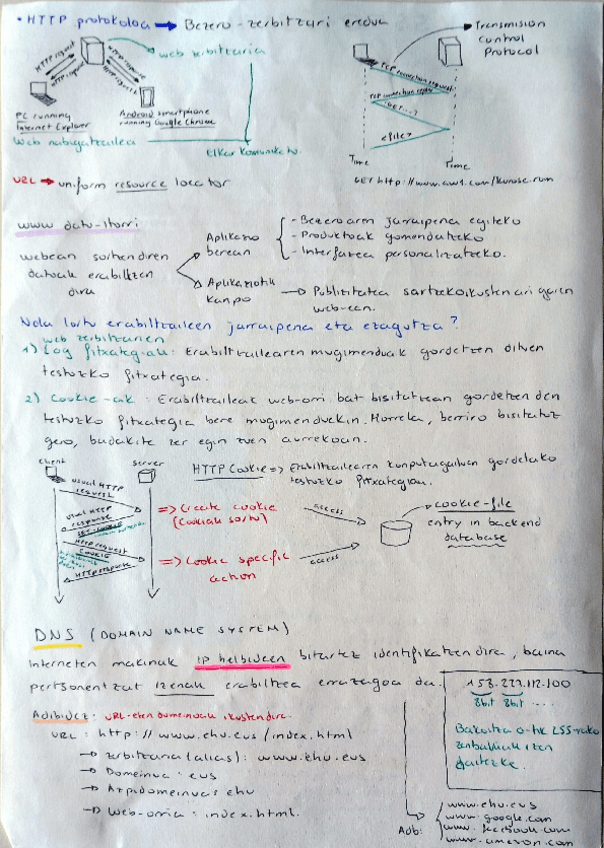 • HTTP protokoloa → Bezero-zerbitzari eredua
→ Transmision
Control
Protocol
web zerbitzaria
HTTP request
HTTP request
TCP connection request
TCP connection reply
GET...?
<file>
PC running
Internet Explorer
Android smartphone
running Google Chrome
Web nabigatzailea
Elkar komunikatu
Time
Time
URL → uniform resource locator
www datu-iturri
webean sortzen diren
datuak erabiltzen
dira
Aplikazio
berean
- Bezeroaren jarraipena egiteko
- Produktoak gomendatzeko
- Interfazea pertsonalizatzeko.
Aplikaziotik
kanpo
→ Publizitatea sartzeko ikustenari garen
web-ean.
Nola lortu erabiltzaileen jarraipena eta ezagutza?
web zerbitzarien
1) Log fitxategiak: Erabiltzailearen mugimenduak gordetzen dituen
testuzko fitxategia.
2) Cookie-ak: Erabiltzaileak web-orri bat bisitatzean gordetzen den
testuzko fitxategia bere mugimenduekin. Horrela, berriro bisitatuz
gero, badakite zer egin zuen aurrekoan.
Client
Server
HTTP Cookie => Erabiltzailearen konputagailuan gordetako
testuzko fitxategian.
usual HTTP
request
usual HTTP
response
set-cookie
HTTP request
cookie
HTTP response
=> Create cookie
(Cookiak sortu)
access
=> Cookie specific
action
access
cookie-file
entry in backend
database
DNS (DOMAIN NAME SYSTEM)
Interneten makinak IP helbideen bitartez identifikatzen dira, baina
pertsonentzat izenak erabiltzea errazagoa da.
158.227.112.100
8bit 8bit ....
Bakoitza 0-tik 255-rako
zenbakiak izan
daitezke.
Adibidez: URL-eten domeinuak ikusten dira.
URL: http://www.ehu.eus/index.html
→ Zerbitzaria (alias): www.ehu.eus
→ Domeinua: eus
→ Azpidomeinua: ehu
→ Web-orria: index.html.
Adb:
www.ehu.eus
www.google.com
www.facebook.com
www.amazon.com